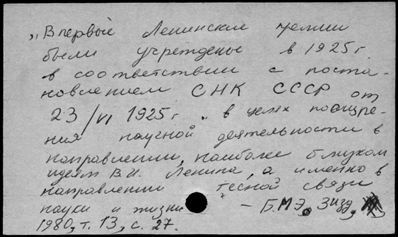 „Впервые Ленинские премии
были учреждены в 1925 г.
в соответствии с поста-
новлением СНК СССР от
23/VI 1925 г. „в целях поощре-
ния научной деятельности в
направлении, наиболее близком
идеям В.И. Ленина, а именно в
направлении тесной связи
науки и жизни – БМЭ, 3 изд,
1980, т. 13, с. 27.